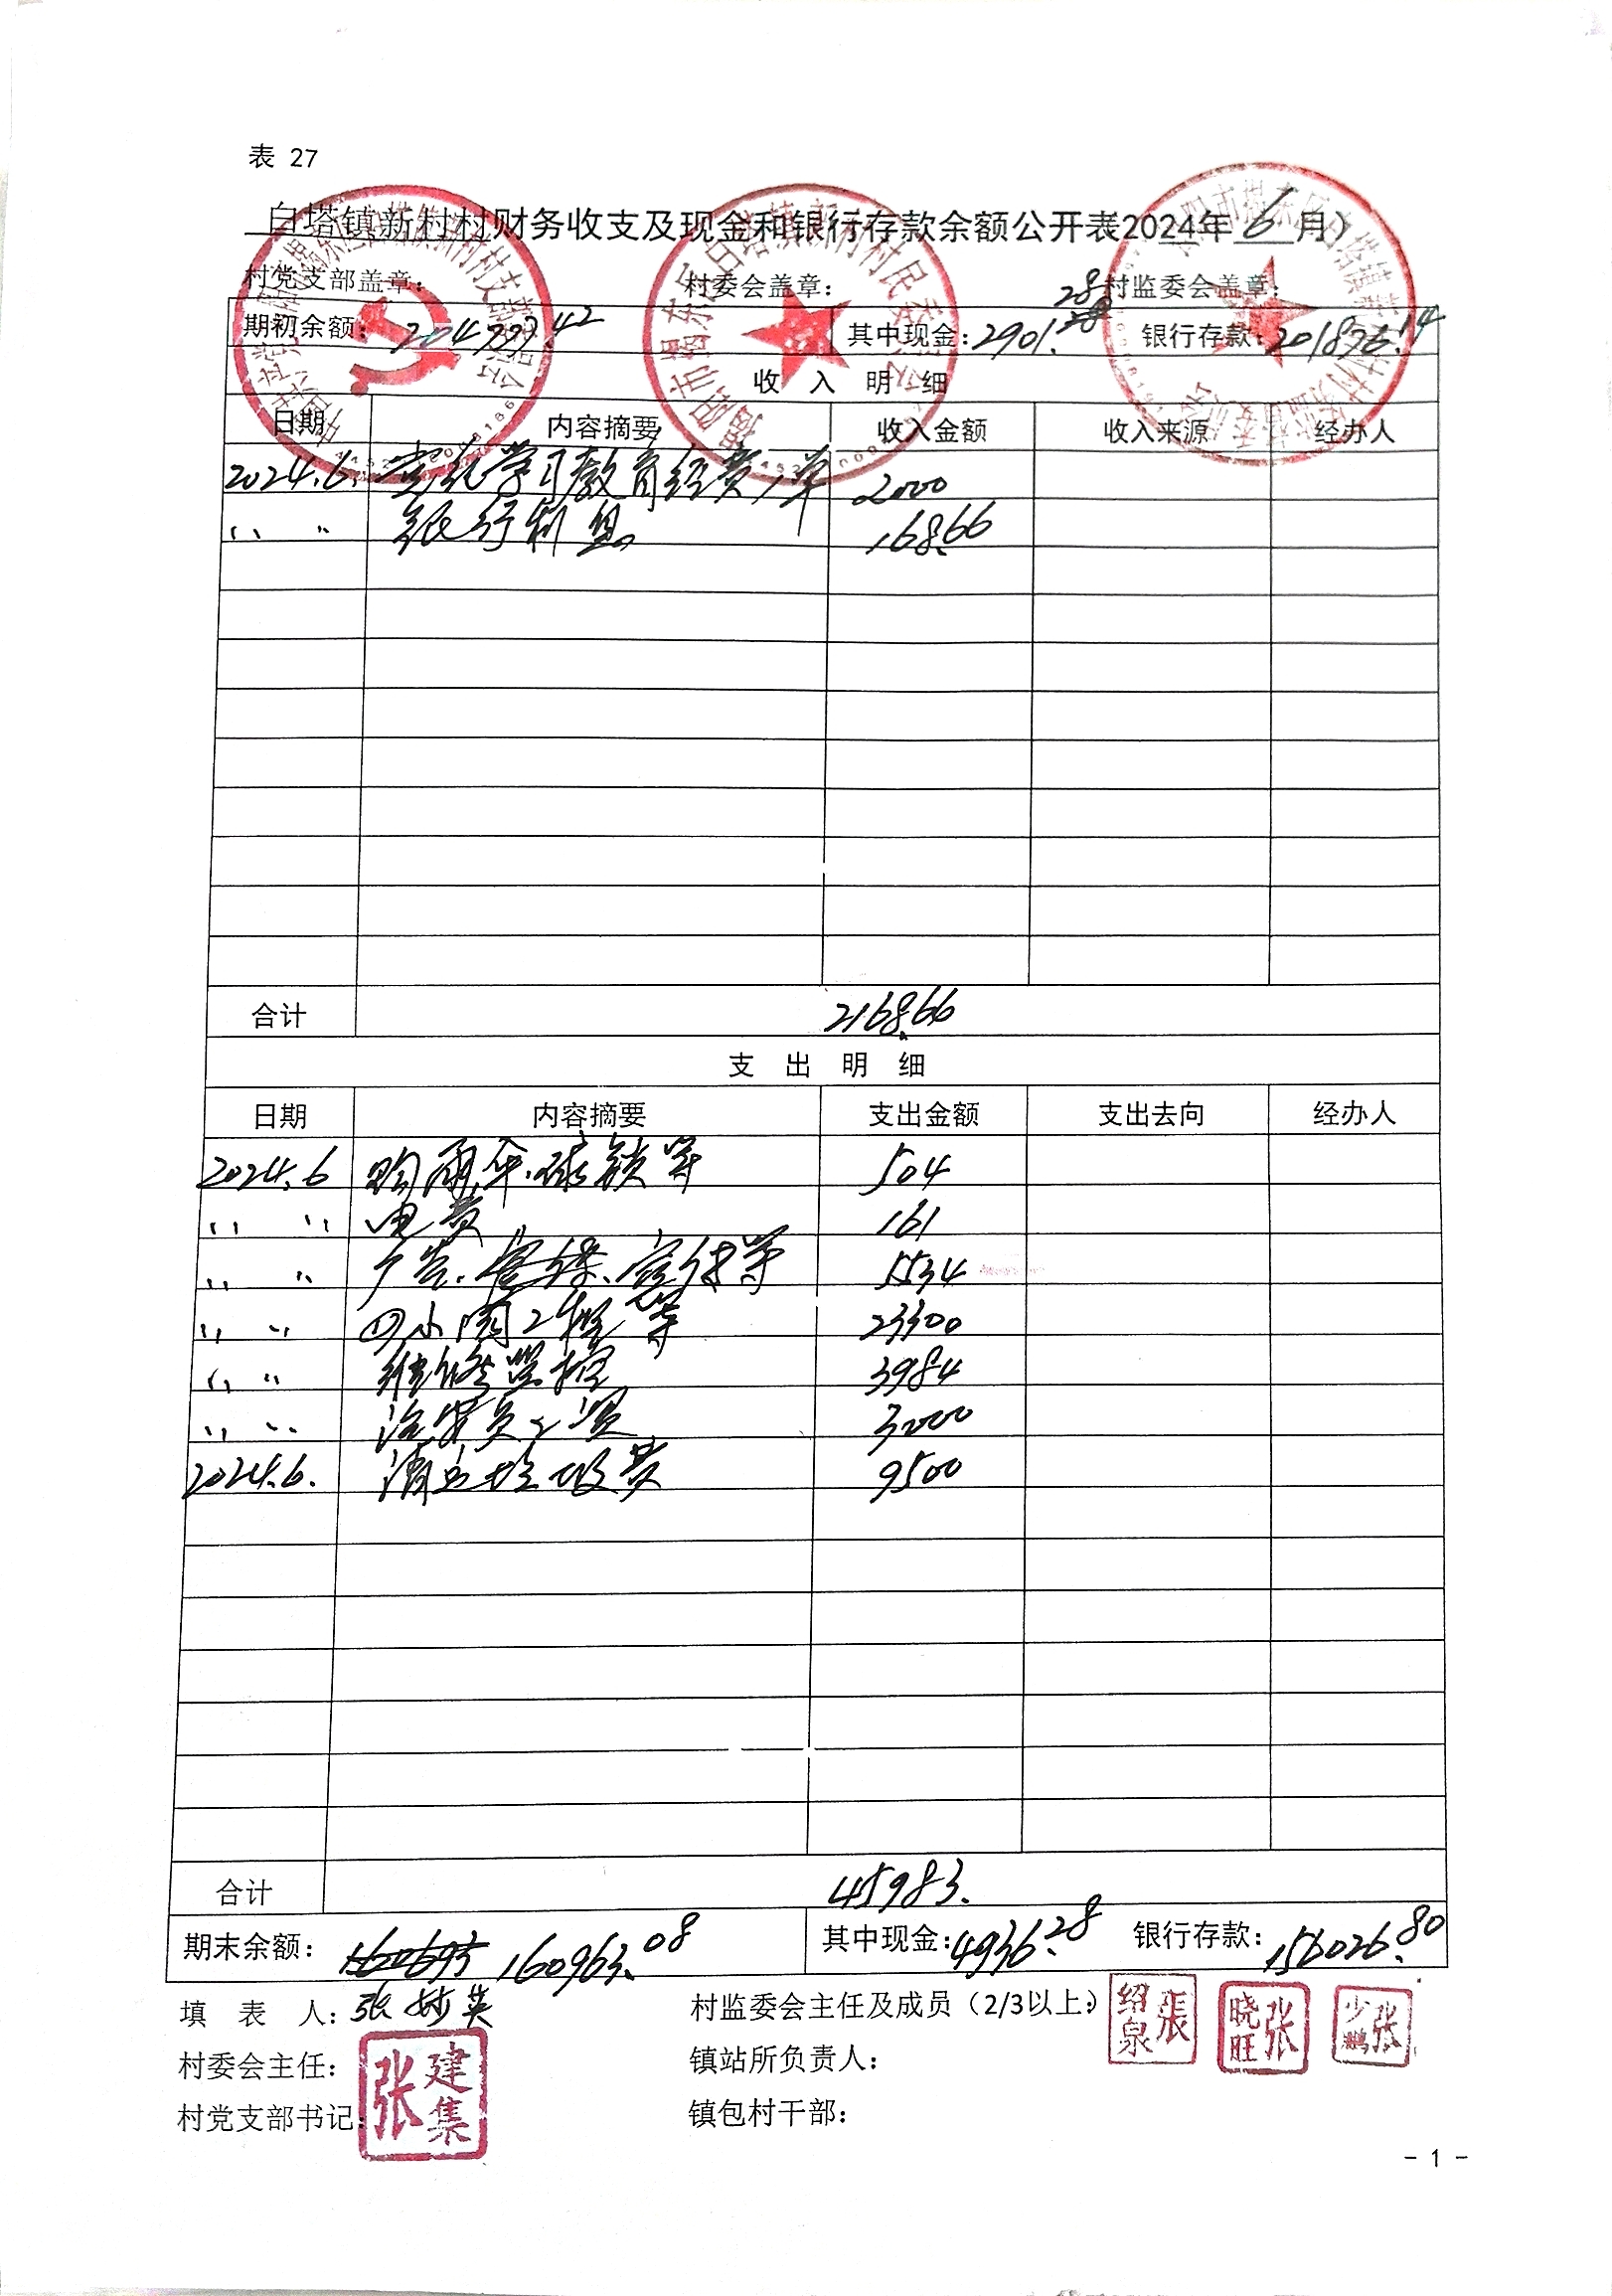 表 27
白塔镇新村村财务收支及现金和银行存款余额公开表2024年 6 月)
村党支部盖章: 村委会盖章: 村监委会盖章:
期初余额: 204777.42 其中现金: 2901.28 银行存款: 201876.14
收 入 明 细
日期 内容摘要 收入金额 收入来源 经办人
2024.6. 党纪学习教育经费1单 2000
〃 〃 银行利息 168.66
合计 2168.66
支 出 明 细
日期 内容摘要 支出金额 支出去向 经办人
2024.6 购雨伞、球锁等 504
〃 〃 电费 161
〃 〃 广告、宣传等 5534
〃 〃 四小园工程等 23300
〃 〃 维修监控 3984
〃 〃 治安员工资 3000
2024.6. 清运垃圾费 9500
合计 45983.
期末余额: 160693 160963.08 其中现金: 4936.28 银行存款: 156026.80
填 表 人: 张妙英 村监委会主任及成员（2/3以上): 張绍泉 张晓旺 张少鹏
村委会主任: 张建集 镇站所负责人:
村党支部书记: 镇包村干部:
- 1 -